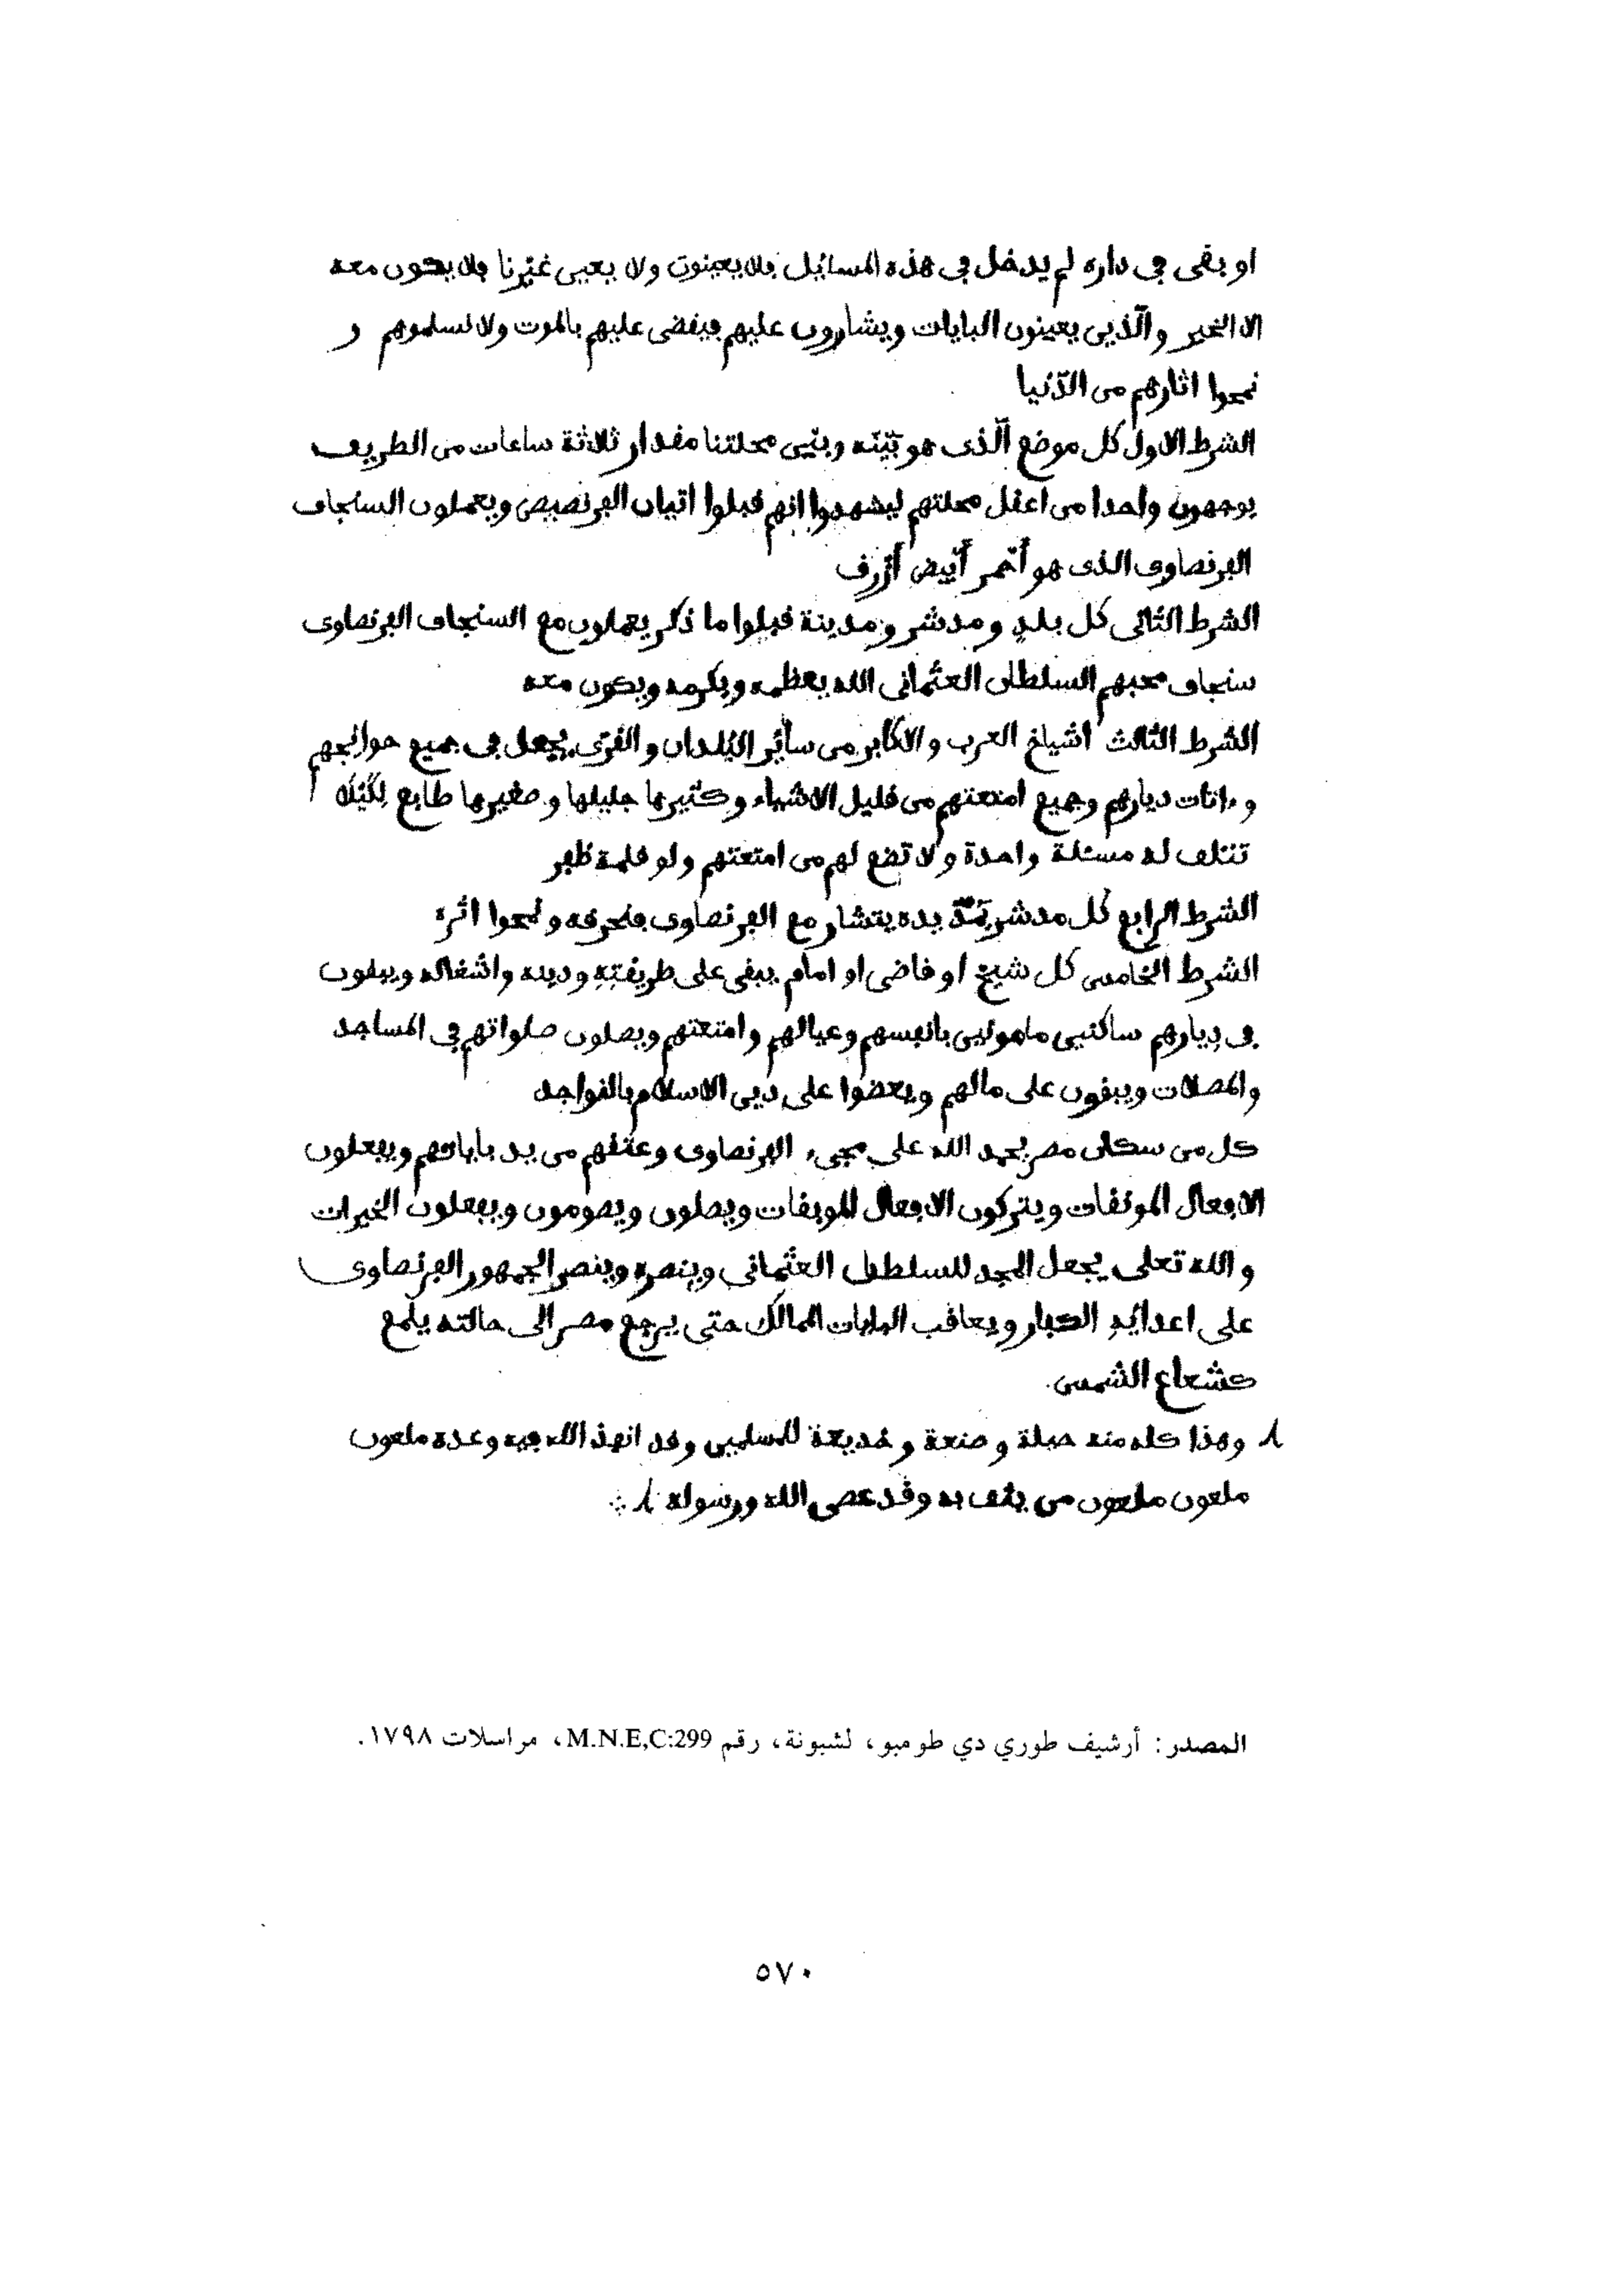 او بقى في داره لم يدخل في هذه المسائيل فلا يعينون ولا يعين غيرنا فلا يكون معه
الا الخير والّذين يعينون البايات ويشارون عليهم فيقضى عليهم بالموت ولا نسلموهم و
نمحوا اثارهم من الدّنيا
الشرط الاول كل موضع الّذى هو بَيْنه وبَيْن محلتنا مقدار ثلاثة ساعات من الطريق
يوجهون واحدا من اعقل محلتهم ليشهدوا انهم قبلوا اتيان الفرنصيص ويعملون السنجاق
الفرنصاوى الذى هو أحْمر أبْيض أزْرق
الشرط الثانى كل بلدٍ ومدشر ومدينة قبلوا ما ذكر يعملون مع السنجاق الفرنصاوى
سنجاق محبهم السلطان العثمانى الله يعظمه ويكرمه ويكون معه
الشرط الثالث اشياخ العرب والاكابر من سائر البُلدان والقرى يجعل في جميع حوائجهم
وءاثات ديارهم وجميع امتعتهم من قليل الاشياء وكثيرها جليلها وصغيرها طابع لِكَيْلا
تتلف له مسئلة واحدة ولا تضع لهم من امتعتهم ولو قلمة ظفر
الشرط الرابع كل مدشر يَمُدّ يده يتشار مع الفرنصاوى فنحرقه ونمحوا اثره
الشرط الخامس كل شيخ او قاضى او امام يبقى على طريقتِهِ ودينه واشغاله ويبقون
في دِيارهم ساكنين مامونين بانفسهم وعيالهم وامتعتهم ويصلون صلواتهم في المساجد
والمصلات ويبقون على مالهم ويعضوا على دين الاسلام بالنواجد
كل من سكان مصر يحمد الله على مجىء الفرنصاوى وعتقهم من يد باياتهم ويفعلون
الافعال الموثقات ويتركون الافعال الموبقات ويصلون ويصومون ويفعلون الخيرات
والله تعلى يجعل المجد للسلطان العثمانى وينصره وينصر الجمهور الفرنصاوى
على اعدائِهِ الكبار ويعاقب البايات المماليك حتى يرجع مصر الى حالته يلمع
كشعاع الشمس.
وهذا كله منه حيلة وصنعة وخديعة للمسلمين وقد انفذ الله فيه وعده ملعون
ملعون ملعون من يثق به وقد عصى الله ورسوله
المصدر: أرشيف طوري دي طومبو، لشبونة، رقم M.N.E,C:299، مراسلات ١٧٩٨.
٥٧٠